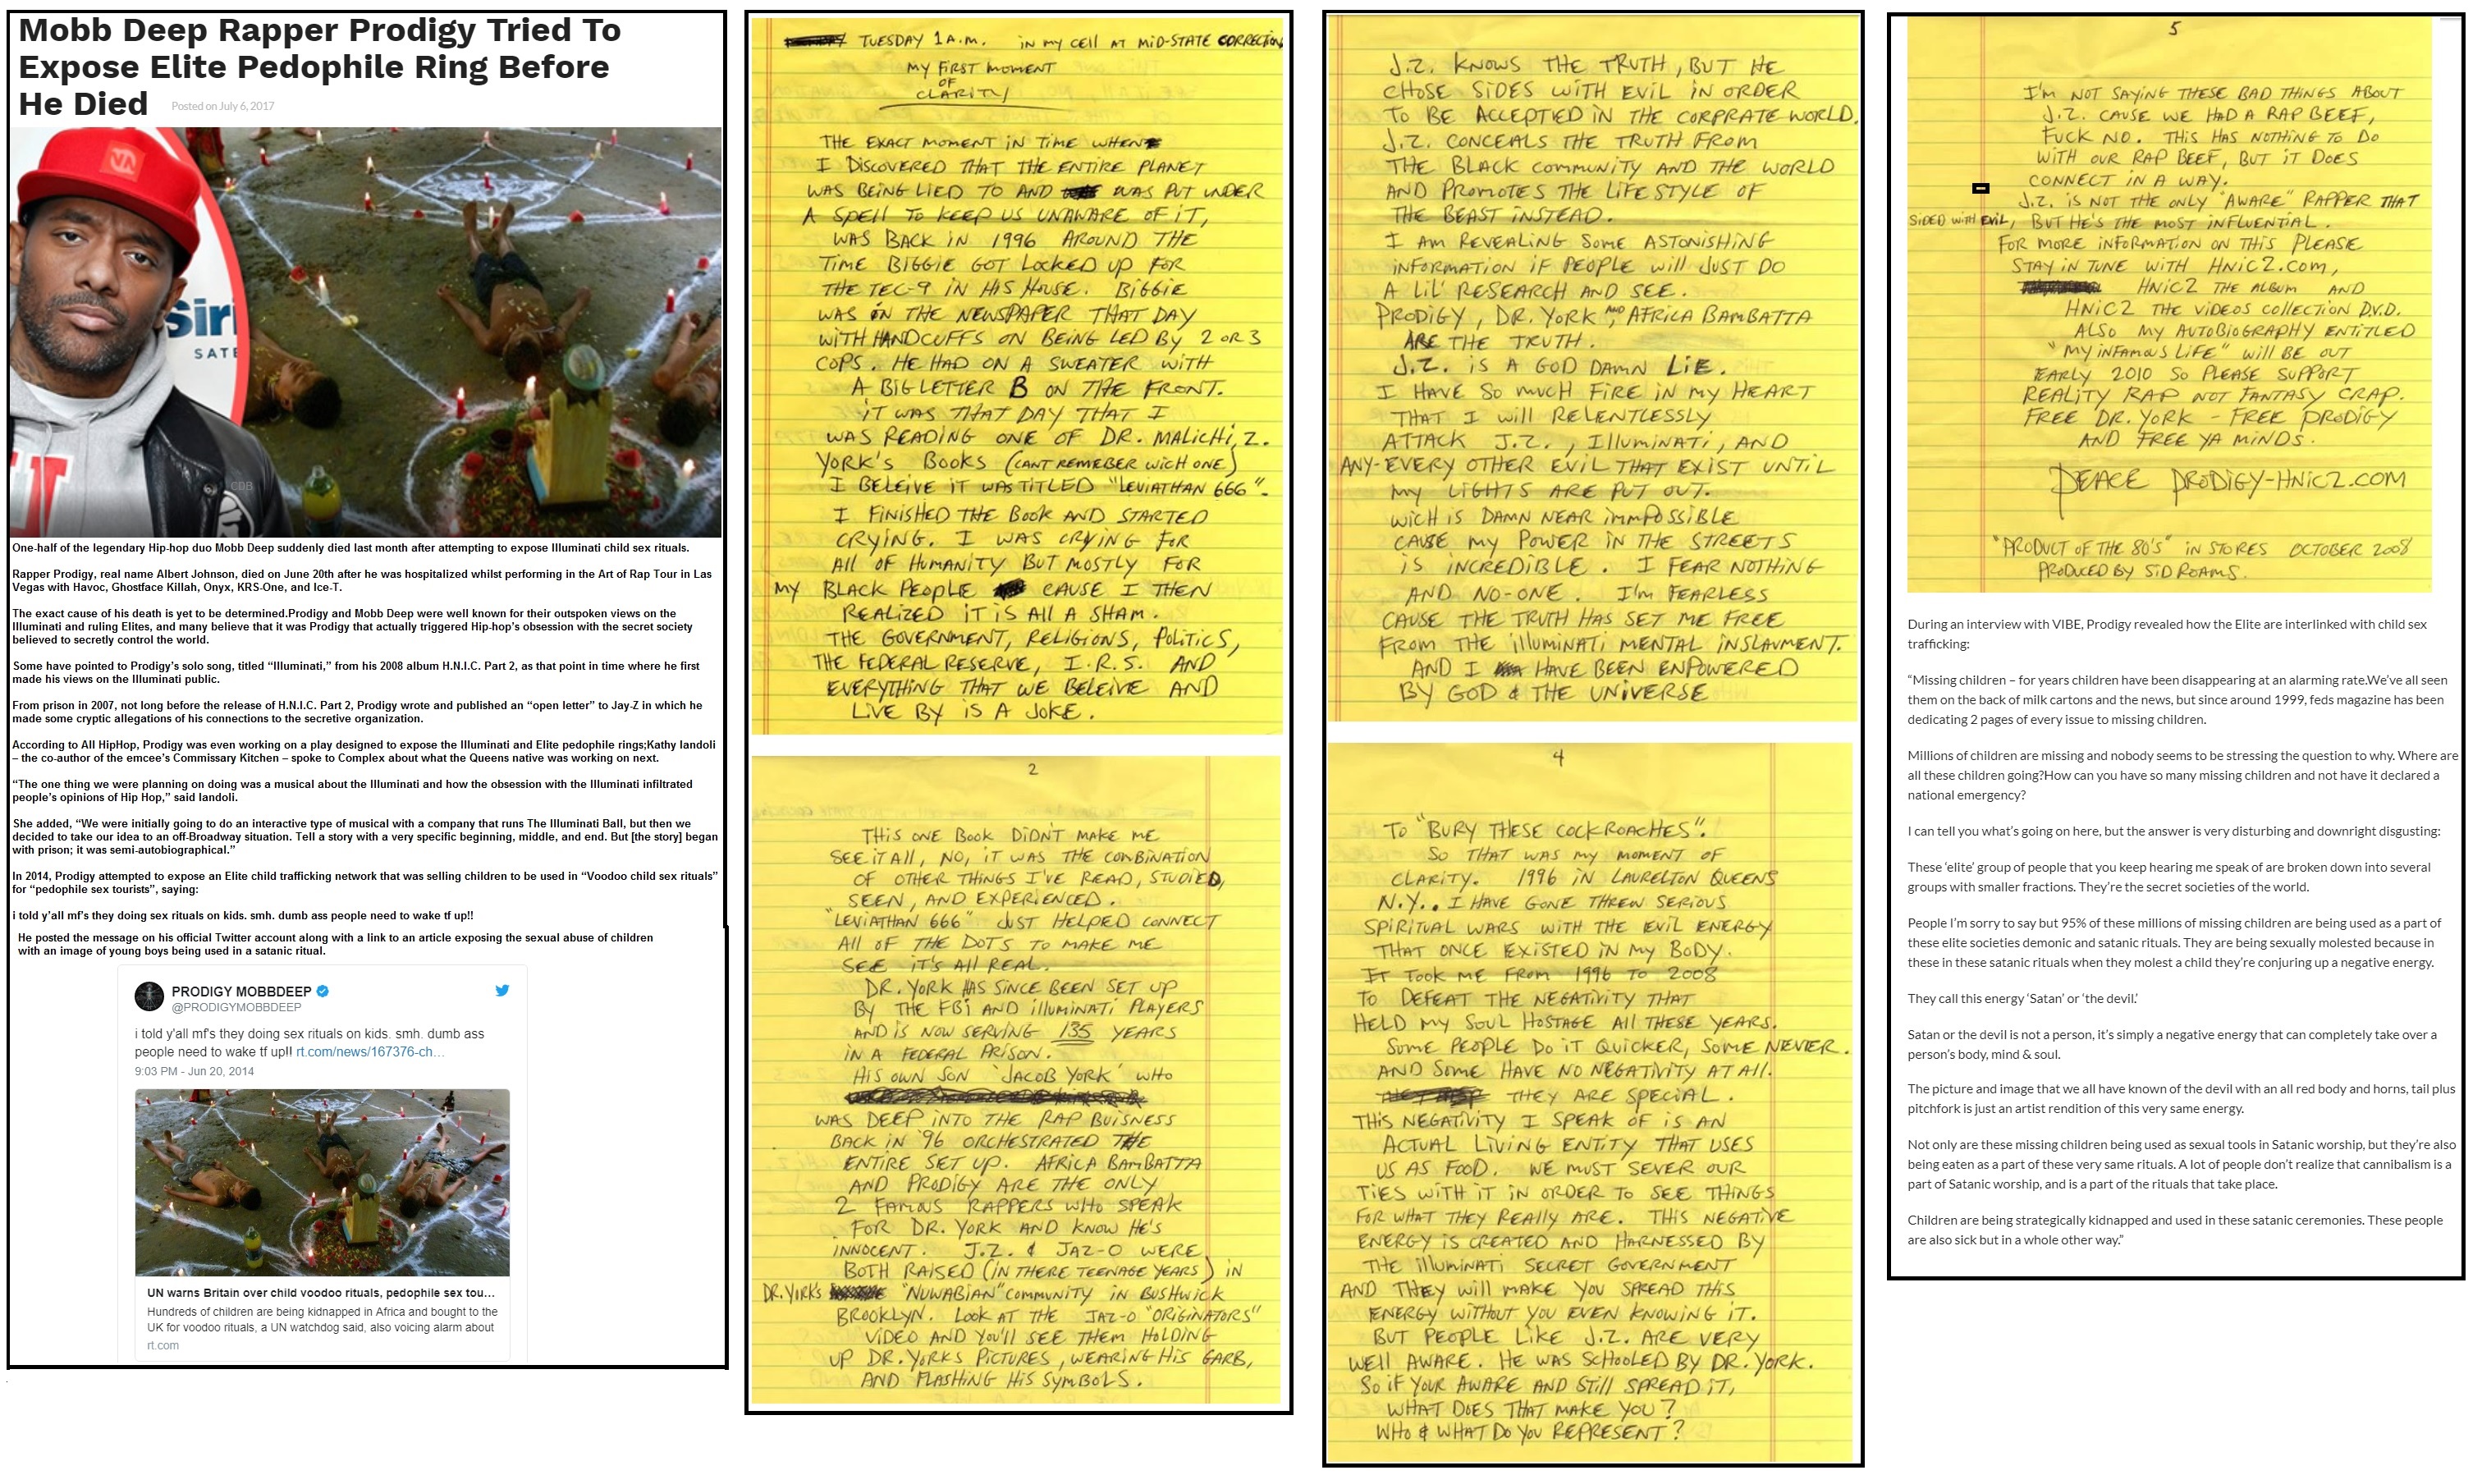 Mobb Deep Rapper Prodigy Tried To
Expose Elite Pedophile Ring Before
He Died Posted on July 6, 2017
Siri
SATE
CDB
One-half of the legendary Hip-hop duo Mobb Deep suddenly died last month after attempting to expose Illuminati child sex rituals.
Rapper Prodigy, real name Albert Johnson, died on June 20th after he was hospitalized whilst performing in the Art of Rap Tour in Las
Vegas with Havoc, Ghostface Killah, Onyx, KRS-One, and Ice-T.
The exact cause of his death is yet to be determined.Prodigy and Mobb Deep were well known for their outspoken views on the
Illuminati and ruling Elites, and many believe that it was Prodigy that actually triggered Hip-hop's obsession with the secret society
believed to secretly control the world.
Some have pointed to Prodigy's solo song, titled “Illuminati,” from his 2008 album H.N.I.C. Part 2, as that point in time where he first
made his views on the Illuminati public.
From prison in 2007, not long before the release of H.N.I.C. Part 2, Prodigy wrote and published an “open letter” to Jay-Z in which he
made some cryptic allegations of his connections to the secretive organization.
According to All HipHop, Prodigy was even working on a play designed to expose the Illuminati and Elite pedophile rings;Kathy Iandoli
– the co-author of the emcee's Commissary Kitchen – spoke to Complex about what the Queens native was working on next.
“The one thing we were planning on doing was a musical about the Illuminati and how the obsession with the Illuminati infiltrated
people's opinions of Hip Hop,” said Iandoli.
She added, “We were initially going to do an interactive type of musical with a company that runs The Illuminati Ball, but then we
decided to take our idea to an off-Broadway situation. Tell a story with a very specific beginning, middle, and end. But [the story] began
with prison; it was semi-autobiographical.”
In 2014, Prodigy attempted to expose an Elite child trafficking network that was selling children to be used in “Voodoo child sex rituals”
for “pedophile sex tourists”, saying:
i told y'all mf's they doing sex rituals on kids. smh. dumb ass people need to wake tf up!!
He posted the message on his official Twitter account along with a link to an article exposing the sexual abuse of children
with an image of young boys being used in a satanic ritual.
PRODIGY MOBBDEEP
@PRODIGYMOBBDEEP
i told y'all mf's they doing sex rituals on kids. smh. dumb ass
people need to wake tf up!! rt.com/news/167376-ch...
9:03 PM - Jun 20, 2014
UN warns Britain over child voodoo rituals, pedophile sex tou...
Hundreds of children are being kidnapped in Africa and bought to the
UK for voodoo rituals, a UN watchdog said, also voicing alarm about
rt.com
TUESDAY 1 A.M. IN MY CELL AT MID-STATE CORRECTION
MY FIRST MOMENT
OF
CLARITY
THE EXACT MOMENT IN TIME WHEN
I DISCOVERED THAT THE ENTIRE PLANET
WAS BEING LIED TO AND WAS PUT UNDER
A SPELL TO KEEP US UNAWARE OF IT,
WAS BACK IN 1996 AROUND THE
TIME BIGGIE GOT LOCKED UP FOR
THE TEC-9 IN HIS HOUSE. BIGGIE
WAS ON THE NEWSPAPER THAT DAY
WITH HANDCUFFS ON BEING LED BY 2 OR 3
COPS. HE HAD ON A SWEATER WITH
A BIG LETTER B ON THE FRONT.
IT WAS THAT DAY THAT I
WAS READING ONE OF DR. MALICHI, Z.
YORK'S BOOKS (CANT REMEBER WICH ONE)
I BELEIVE IT WAS TITLED "LEVIATHAN 666".
I FINISHED THE BOOK AND STARTED
CRYING. I WAS CRYING FOR
ALL OF HUMANITY BUT MOSTLY FOR
MY BLACK PEOPLE CAUSE I THEN
REALIZED IT IS ALL A SHAM.
THE GOVERNMENT, RELIGIONS, POLITICS,
THE FEDERAL RESERVE, I.R.S. AND
EVERYTHING THAT WE BELEIVE AND
LIVE BY IS A JOKE.
2
THIS ONE BOOK DIDN'T MAKE ME
SEE IT ALL, NO, IT WAS THE CONBINATION
OF OTHER THINGS I'VE READ, STUDIED,
SEEN, AND EXPERIENCED.
"LEVIATHAN 666" JUST HELPED CONNECT
ALL OF THE DOTS TO MAKE ME
SEE IT'S ALL REAL.
DR. YORK HAS SINCE BEEN SET UP
BY THE FBI AND ILLUMINATI PLAYERS
AND IS NOW SERVING 135 YEARS
IN A FEDERAL PRISON.
HIS OWN SON 'JACOB YORK' WHO
WAS DEEP INTO THE RAP BUISNESS
BACK IN '96 ORCHESTRATED THE
ENTIRE SET UP. AFRICA BAMBATTA
AND PRODIGY ARE THE ONLY
2 FAMOUS RAPPERS WHO SPEAK
FOR DR. YORK AND KNOW HE'S
INNOCENT. J.Z. & JAZ-O WERE
BOTH RAISED (IN THERE TEENAGE YEARS) IN
DR. YORK'S "NUWABIAN" COMMUNITY IN BUSHWICK
BROOKLYN. LOOK AT THE JAZ-O "ORIGINATORS"
VIDEO AND YOU'LL SEE THEM HOLDING
UP DR. YORKS PICTURES, WEARING HIS GARB,
AND FLASHING HIS SYMBOLS.
J.Z. KNOWS THE TRUTH, BUT HE
CHOSE SIDES WITH EVIL IN ORDER
TO BE ACCEPTED IN THE CORPRATE WORLD.
J.Z. CONCEALS THE TRUTH FROM
THE BLACK COMMUNITY AND THE WORLD
AND PROMOTES THE LIFESTYLE OF
THE BEAST INSTEAD.
I AM REVEALING SOME ASTONISHING
INFORMATION IF PEOPLE WILL JUST DO
A LIL' RESEARCH AND SEE.
PRODIGY, DR. YORK, AND AFRICA BAMBATTA
ARE THE TRUTH.
J.Z. IS A GOD DAMN LIE.
I HAVE SO MUCH FIRE IN MY HEART
THAT I WILL RELENTLESSLY
ATTACK J.Z., ILLUMINATI, AND
ANY-EVERY OTHER EVIL THAT EXIST UNTIL
MY LIGHTS ARE PUT OUT.
WICH IS DAMN NEAR IMMPOSSIBLE
CAUSE MY POWER IN THE STREETS
IS INCREDIBLE. I FEAR NOTHING
AND NO-ONE. I'M FEARLESS
CAUSE THE TRUTH HAS SET ME FREE
FROM THE ILLUMINATI MENTAL INSLAVMENT.
AND I HAVE BEEN ENPOWERED
BY GOD & THE UNIVERSE
4
TO "BURY THESE COCKROACHES".
SO THAT WAS MY MOMENT OF
CLARITY. 1996 IN LAURELTON QUEENS
N.Y.. I HAVE GONE THREW SERIOUS
SPIRITUAL WARS WITH THE EVIL ENERGY
THAT ONCE EXISTED IN MY BODY.
IT TOOK ME FROM 1996 TO 2008
TO DEFEAT THE NEGATIVITY THAT
HELD MY SOUL HOSTAGE ALL THESE YEARS.
SOME PEOPLE DO IT QUICKER, SOME NEVER.
AND SOME HAVE NO NEGATIVITY AT ALL.
THEY ARE SPECIAL.
THIS NEGATIVITY I SPEAK OF IS AN
ACTUAL LIVING ENTITY THAT USES
US AS FOOD. WE MUST SEVER OUR
TIES WITH IT IN ORDER TO SEE THINGS
FOR WHAT THEY REALLY ARE. THIS NEGATIVE
ENERGY IS CREATED AND HARNESSED BY
THE ILLUMINATI SECRET GOVERNMENT
AND THEY WILL MAKE YOU SPREAD THIS
ENERGY WITHOUT YOU EVEN KNOWING IT.
BUT PEOPLE LIKE J.Z. ARE VERY
WELL AWARE. HE WAS SCHOOLED BY DR. YORK.
SO IF YOUR AWARE AND STILL SPREAD IT,
WHAT DOES THAT MAKE YOU?
WHO & WHAT DO YOU REPRESENT?
5
I'M NOT SAYING THESE BAD THINGS ABOUT
J.Z. CAUSE WE HAD A RAP BEEF,
FUCK NO. THIS HAS NOTHING TO DO
WITH OUR RAP BEEF, BUT IT DOES
CONNECT IN A WAY.
J.Z. IS NOT THE ONLY "AWARE" RAPPER THAT
SIDED WITH EVIL, BUT HE'S THE MOST INFLUENTIAL.
FOR MORE INFORMATION ON THIS PLEASE
STAY IN TUNE WITH HNIC2.COM,
HNIC2 THE ALBUM AND
HNIC2 THE VIDEOS COLLECTION D.V.D.
ALSO MY AUTOBIOGRAPHY ENTITLED
"MY INFAMOUS LIFE" WILL BE OUT
EARLY 2010 SO PLEASE SUPPORT
REALITY RAP NOT FANTASY CRAP.
FREE DR. YORK - FREE PRODIGY
AND FREE YA MINDS.
PEACE PRODIGY-HNIC2.COM
"PRODUCT OF THE 80'S" IN STORES OCTOBER 2008
PRODUCED BY SID ROAMS.
During an interview with VIBE, Prodigy revealed how the Elite are interlinked with child sex
trafficking:
“Missing children – for years children have been disappearing at an alarming rate.We've all seen
them on the back of milk cartons and the news, but since around 1999, feds magazine has been
dedicating 2 pages of every issue to missing children.
Millions of children are missing and nobody seems to be stressing the question to why. Where are
all these children going?How can you have so many missing children and not have it declared a
national emergency?
I can tell you what's going on here, but the answer is very disturbing and downright disgusting:
These 'elite' group of people that you keep hearing me speak of are broken down into several
groups with smaller fractions. They're the secret societies of the world.
People I'm sorry to say but 95% of these millions of missing children are being used as a part of
these elite societies demonic and satanic rituals. They are being sexually molested because in
these in these satanic rituals when they molest a child they're conjuring up a negative energy.
They call this energy 'Satan' or 'the devil.'
Satan or the devil is not a person, it's simply a negative energy that can completely take over a
person's body, mind & soul.
The picture and image that we all have known of the devil with an all red body and horns, tail plus
pitchfork is just an artist rendition of this very same energy.
Not only are these missing children being used as sexual tools in Satanic worship, but they're also
being eaten as a part of these very same rituals. A lot of people don't realize that cannibalism is a
part of Satanic worship, and is a part of the rituals that take place.
Children are being strategically kidnapped and used in these satanic ceremonies. These people
are also sick but in a whole other way.”